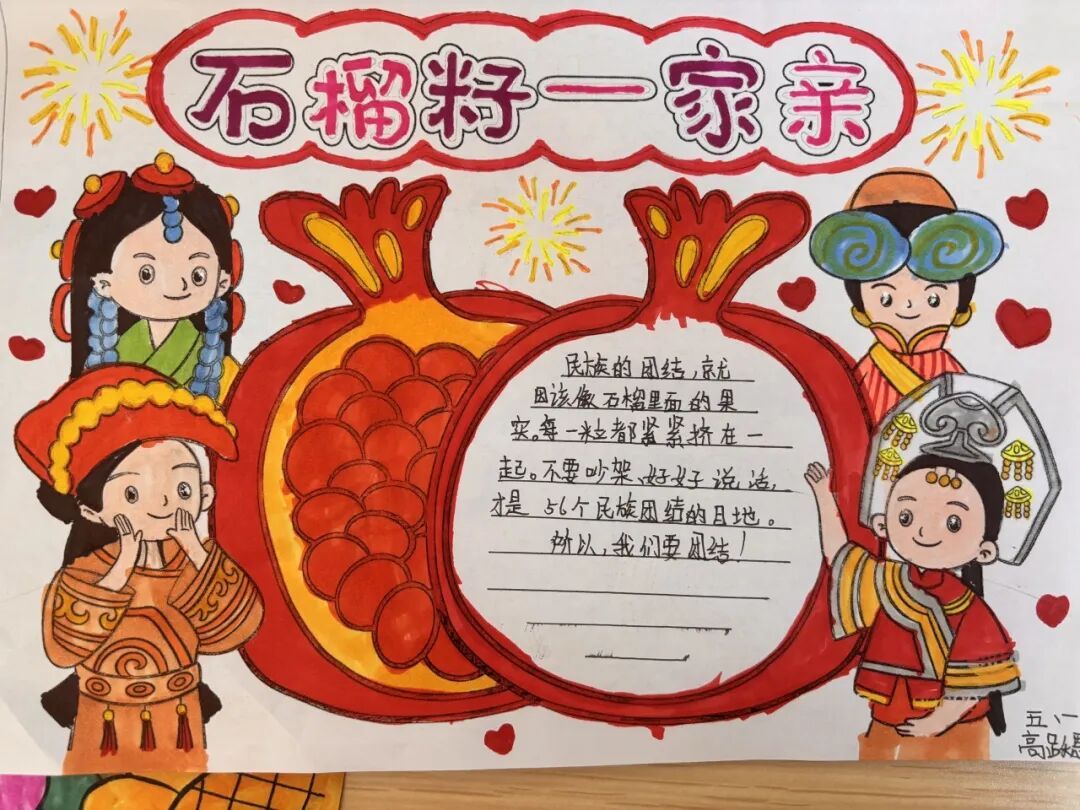 石榴籽一家亲
民族的团结，就
因该像石榴里面的果
实。每一粒都紧紧挤在一
起。不要吵架、好好说话，
才是 56个民族团结的目地。
所以，我们要团结！
五、一
高